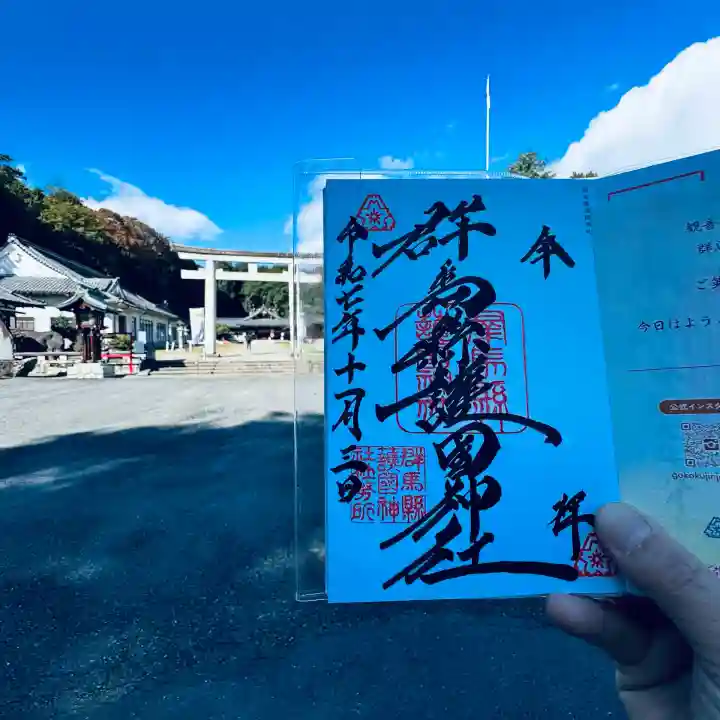 奉
拝
群馬縣護国神社
令和七年十月三日
群馬縣
護國神
社社務所
観音
ご笑
今日はよう
公式インスタ
gokokujinj